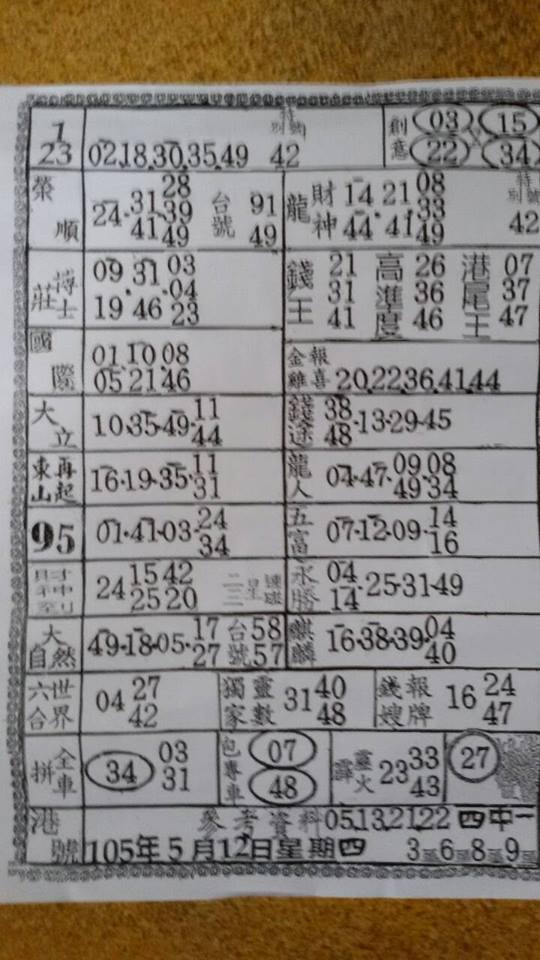 1
23
02,18,30,35,49
特別號
42
創意
03 15
22 34
榮順
24· 31 28
41 39
49
台號
91
49
龍
財神
14 21 08
44 41 33
49
特別號
42
莊
博士
09 31 03
04
19 46 23
錢王
21
31
41
高準度
26
36
46
港尾王
07
37
47
國際
01 10 08
05 21 46
金雞報喜
20,22,36,41,44
大立
10·35·49· 11
44
錢途
38
48 ·13·29·45
東山再起
16·19·35· 11
31
龍人
04·47· 09 08
49 34
95
01·41·03· 24
34
五富
07·12·09· 14
16
財神到
24 15 42
25 20
二三星連碰
永勝
04
14 ·25·31·49
大自然
49·18·05· 17
27
台號
58
57
麒麟
16·38·39· 04
40
六合世界
04 27
42
獨家靈數
31 40
48
錢嫂報牌
16 24
47
全車拼
34 03
31
包專車
07
48
霹靈火
23 33
43
27
港號
參考資料05,13,21,22 四中一
105年5月12日星期四 3尾6尾8尾9尾